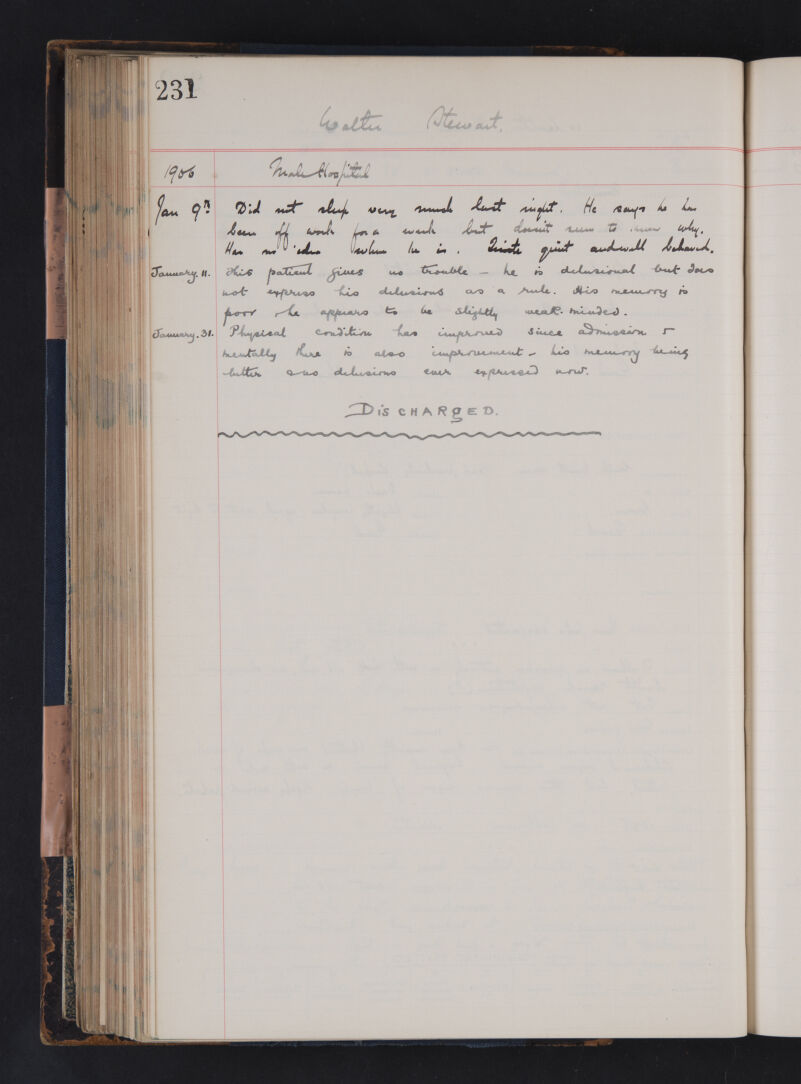 231
Walter Stewart.
1906 Male Hospital
Jan 9th Did not sleep very much last night. He says he has
been off work for a week but doesn't seem to know why.
Has no idea where he is. Quite quiet and well behaved.
January. 11. This patient gives no trouble – he is delusional but does
not express his delusions as a rule. His memory is
poor & he appears to be slightly weak-minded.
January. 31. Physical condition has improved since admission &
mentally there is also improvement – his memory being
better & no delusions ever expressed now.
DISCHARGED.